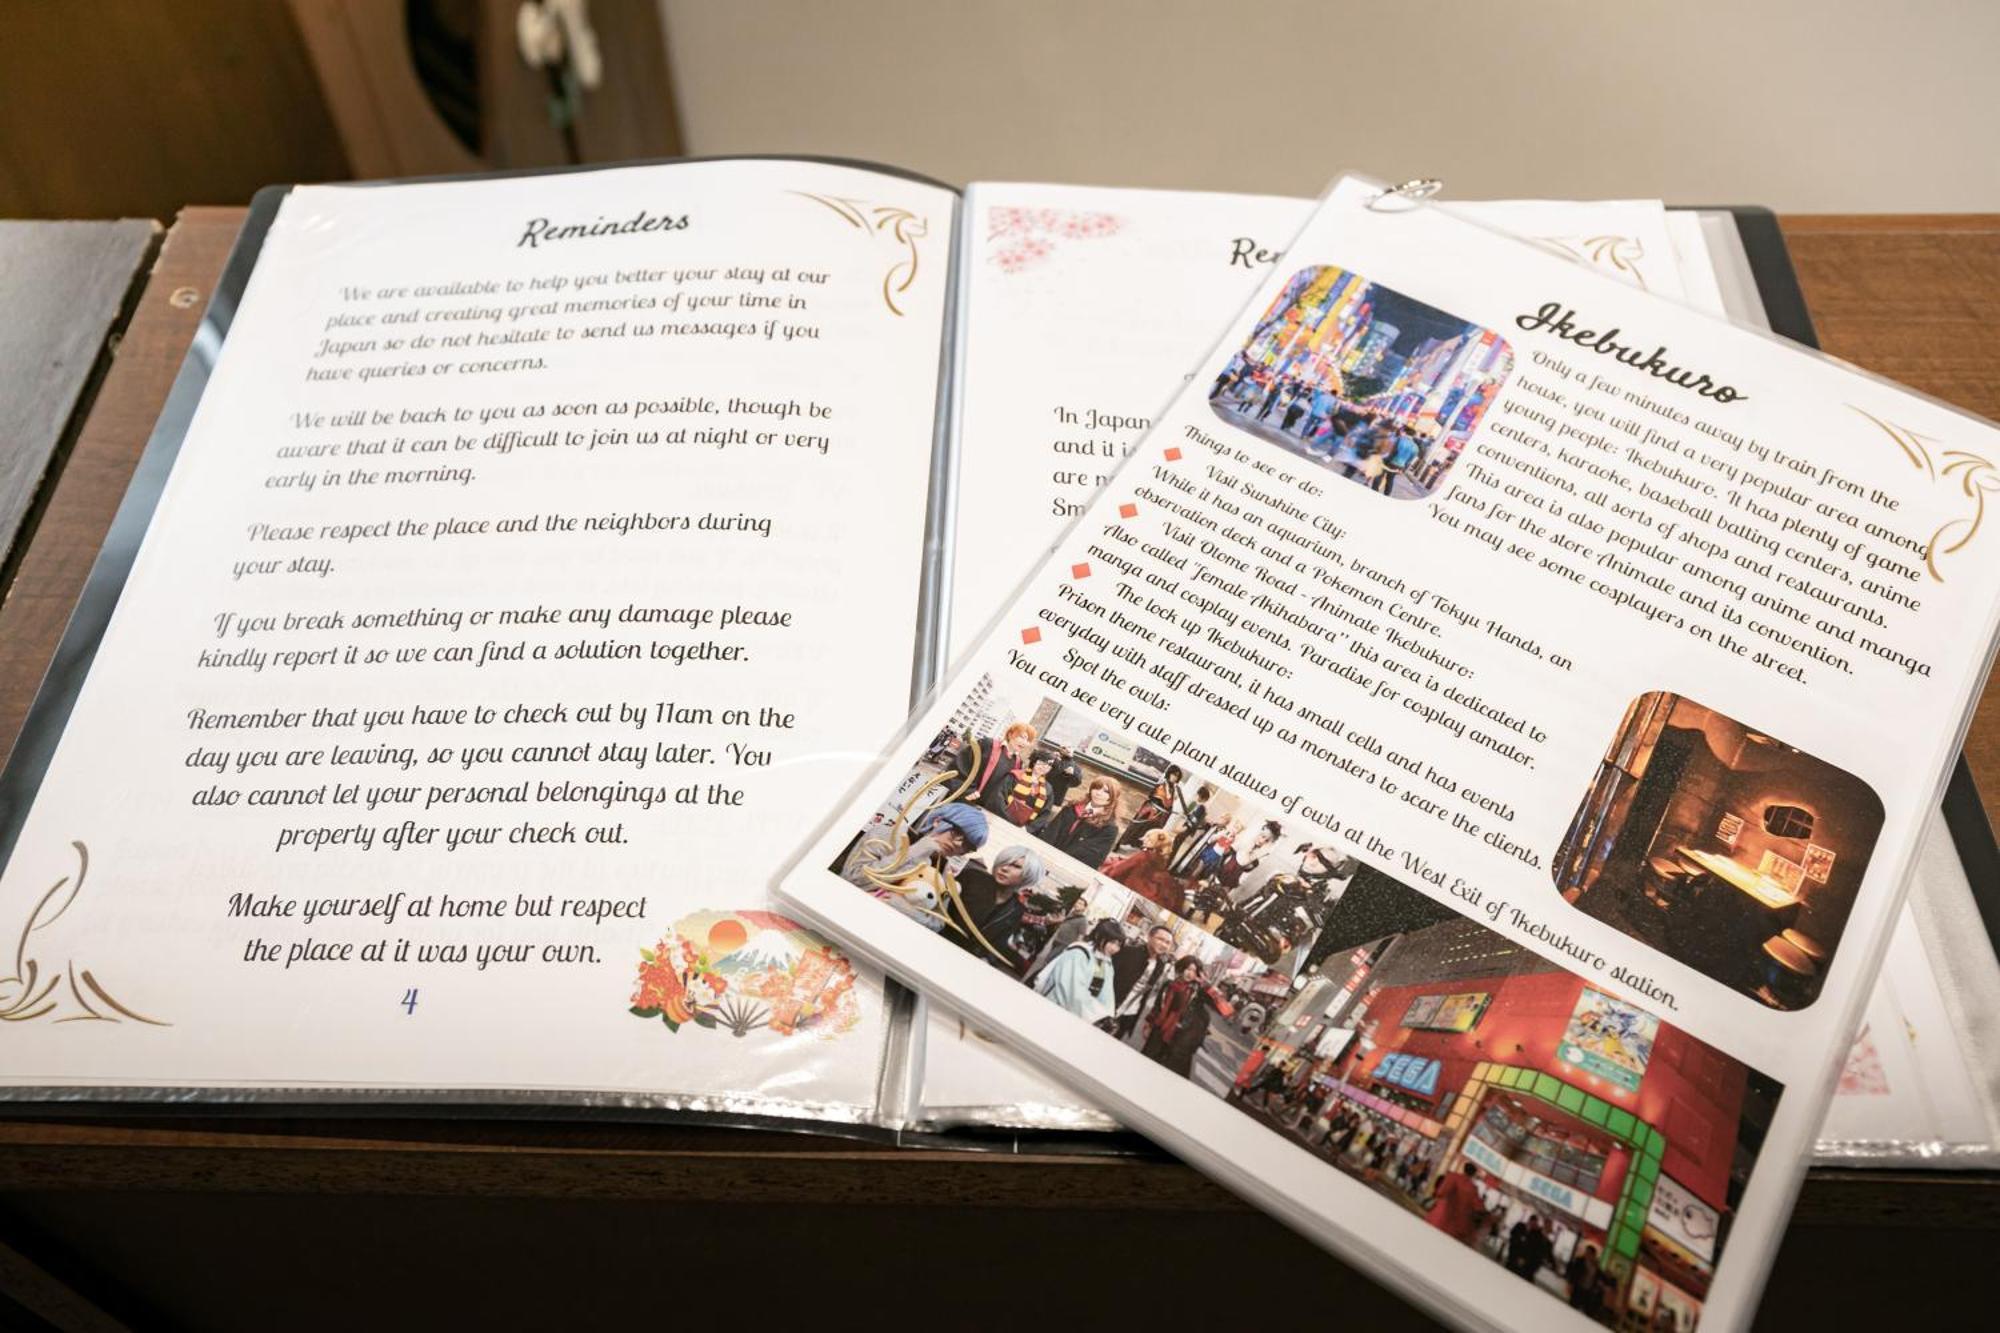 Reminders
We are available to help you better your stay at our
place and creating great memories of your time in
Japan so do not hesitate to send us messages if you
have queries or concerns.
We will be back to you as soon as possible, though be
aware that it can be difficult to join us at night or very
early in the morning.
Please respect the place and the neighbors during
your stay.
If you break something or make any damage please
kindly report it so we can find a solution together.
Remember that you have to check out by 11am on the
day you are leaving, so you cannot stay later. You
also cannot let your personal belongings at the
property after your check out.
Make yourself at home but respect
the place at it was your own.
4
In Japan
and it
are
Ikebukuro
Only a few minutes away by train from the
house, you will find a very popular area among
young people: Ikebukuro. It has plenty of game
centers, karaoke, baseball batting centers, anime
conventions, all sorts of shops and restaurants.
This area is also popular among anime and manga
fans for the store Animate and its convention.
You may see some cosplayers on the street.
Things to see or do:
Visit Sunshine City:
While it has an aquarium, branch of Tokyu Hands, an
observation deck and a Pokemon Centre.
Visit Otome Road - Animate Ikebukuro:
Also called "female Akihabara" this area is dedicated to
manga and cosplay events. Paradise for cosplay amator.
The lock up Ikebukuro:
Prison theme restaurant, it has small cells and has events
everyday with staff dressed up as monsters to scare the clients.
Spot the owls:
You can see very cute plant statues of owls at the West Exit of Ikebukuro station.
SEGA
SEGA
SEGA